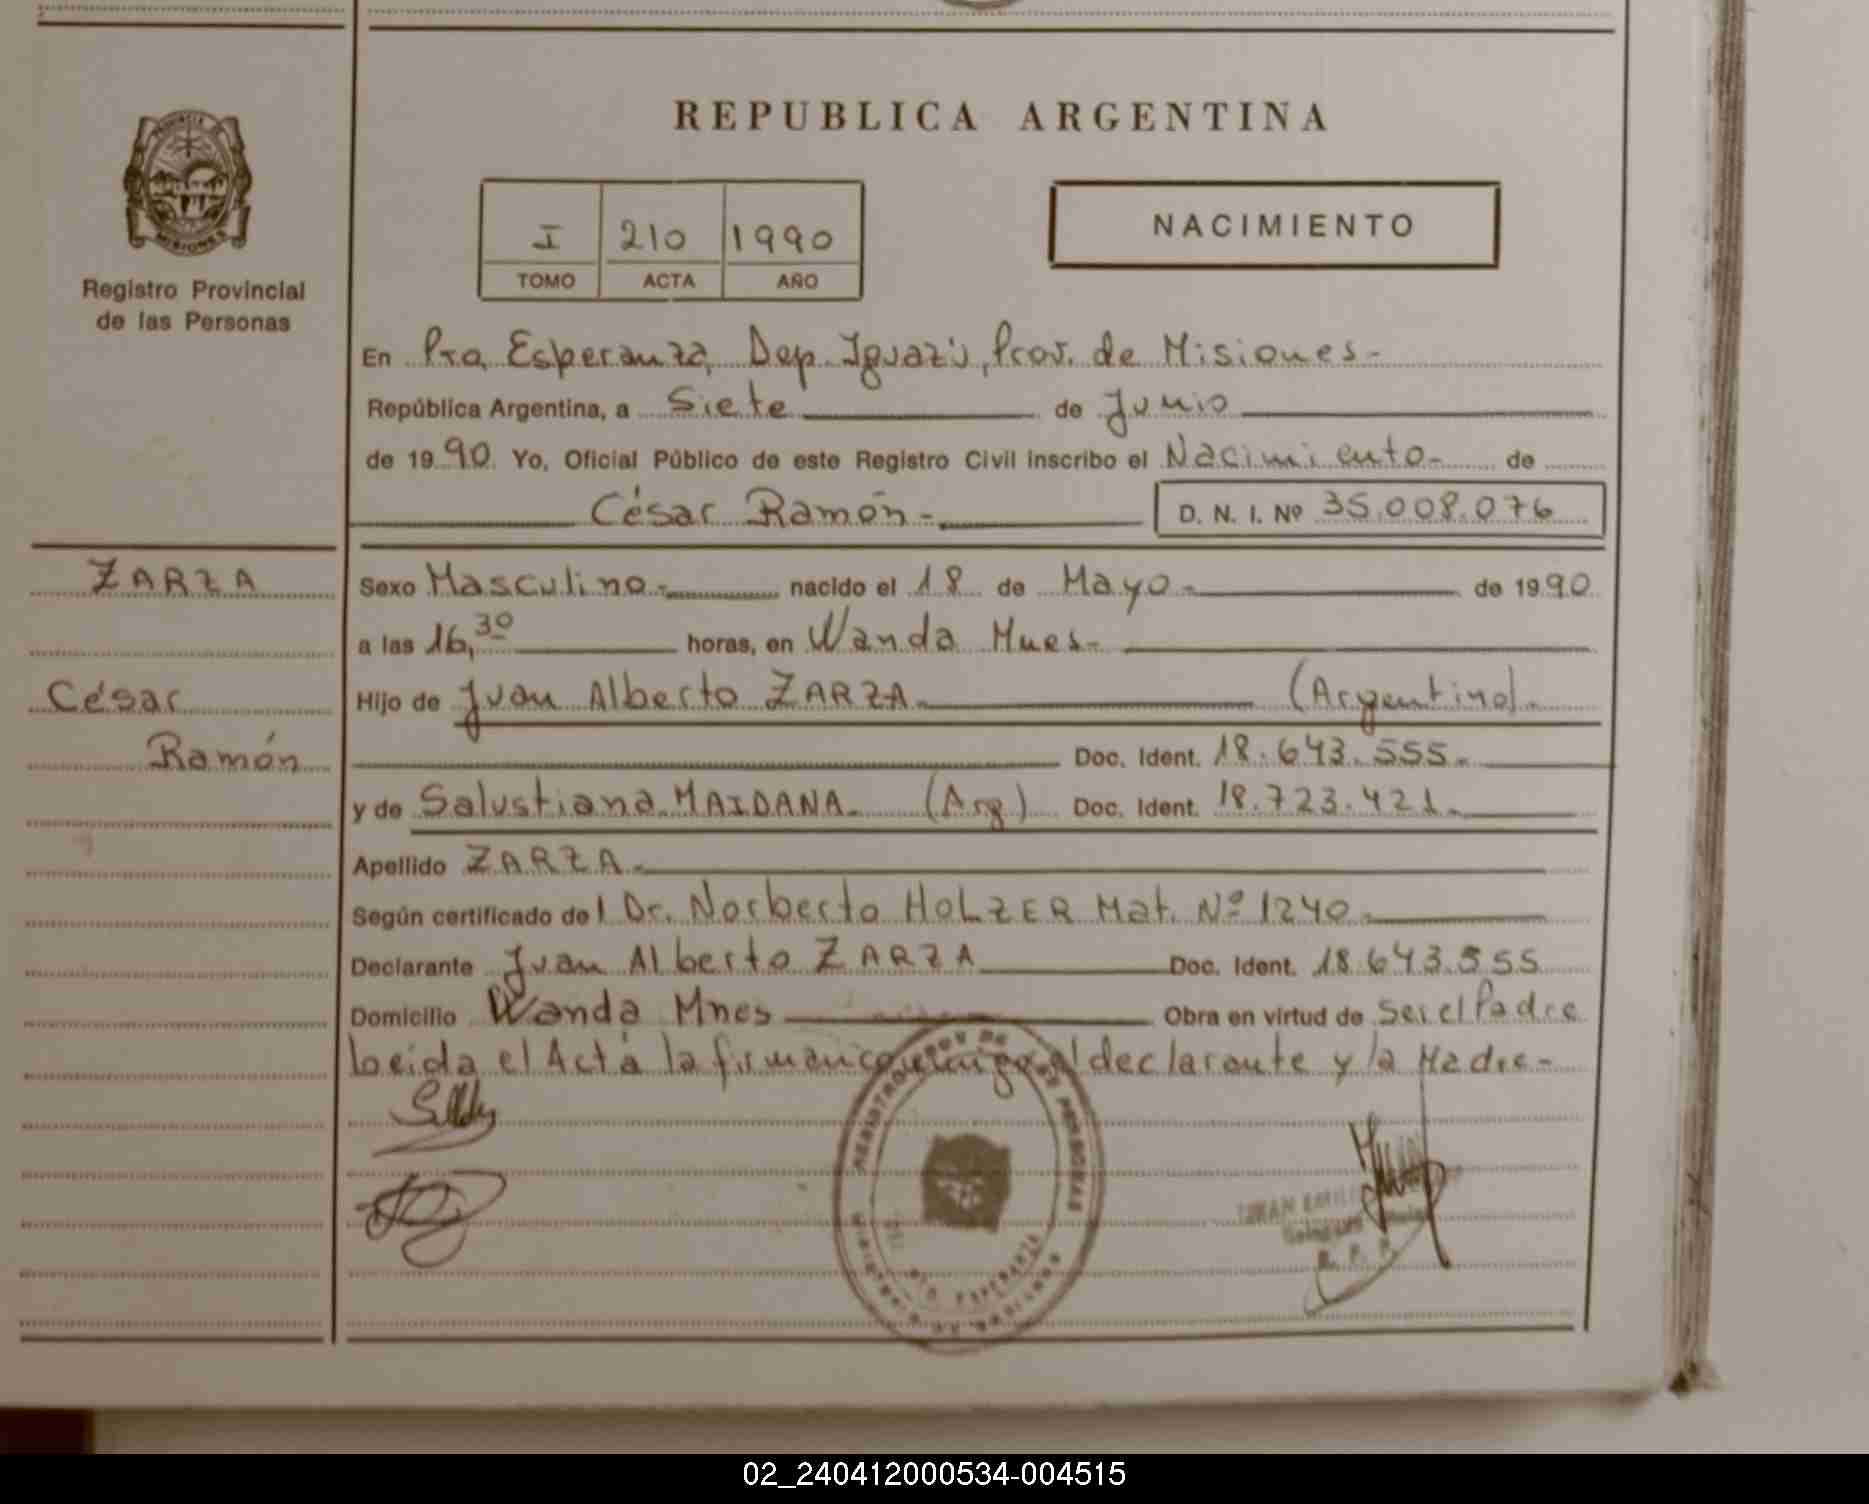 REPUBLICA ARGENTINA
PROVINCIA DE MISIONES
Registro Provincial
de las Personas
I 210 1990
TOMO ACTA AÑO
NACIMIENTO
En Pto. Esperanza, Dep. Iguazú, Prov. de Misiones-
República Argentina, a Siete de Junio
de 1990 Yo, Oficial Público de este Registro Civil inscribo el Nacimiento- de
César Ramón-
D. N. I. Nº 35.008.076
ZARZA
César
Ramón
Sexo Masculino- nacido el 18 de Mayo- de 1990
a las 16,30 horas, en Wanda Mnes-
Hijo de Juan Alberto ZARZA- (Argentino)-
Doc. Ident. 18.643.555-
y de Salustiana MAIDANA- (Arg) Doc. Ident. 18.723.421-
Apellido ZARZA-
Según certificado del Dr. Norberto HOLZER Mat. Nº 1240-
Declarante Juan Alberto ZARZA Doc. Ident. 18.643.555
Domicilio Wanda Mnes Obra en virtud de ser el Padre
Leida el Acta la firman conmigo el declarante y la Madre-
PTO. ESPERANZA
R. P. P.
02_240412000534-004515